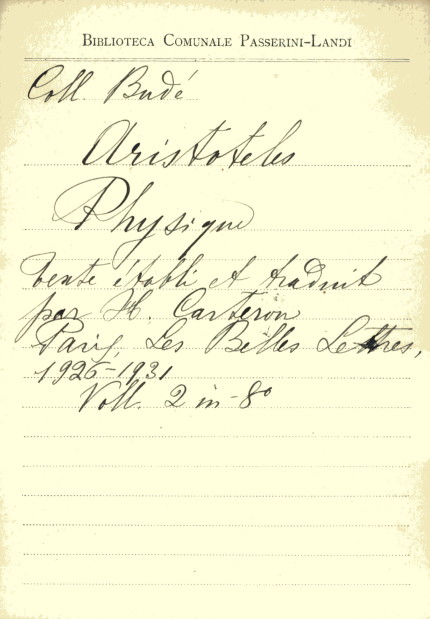 BIBLIOTECA COMUNALE PASSERINI-LANDI
Coll. Budé
Aristoteles
Physique
texte établi et traduit
par H. Carteron
Paris, Les Belles Lettres,
1926-1931
Voll. 2 in-8°